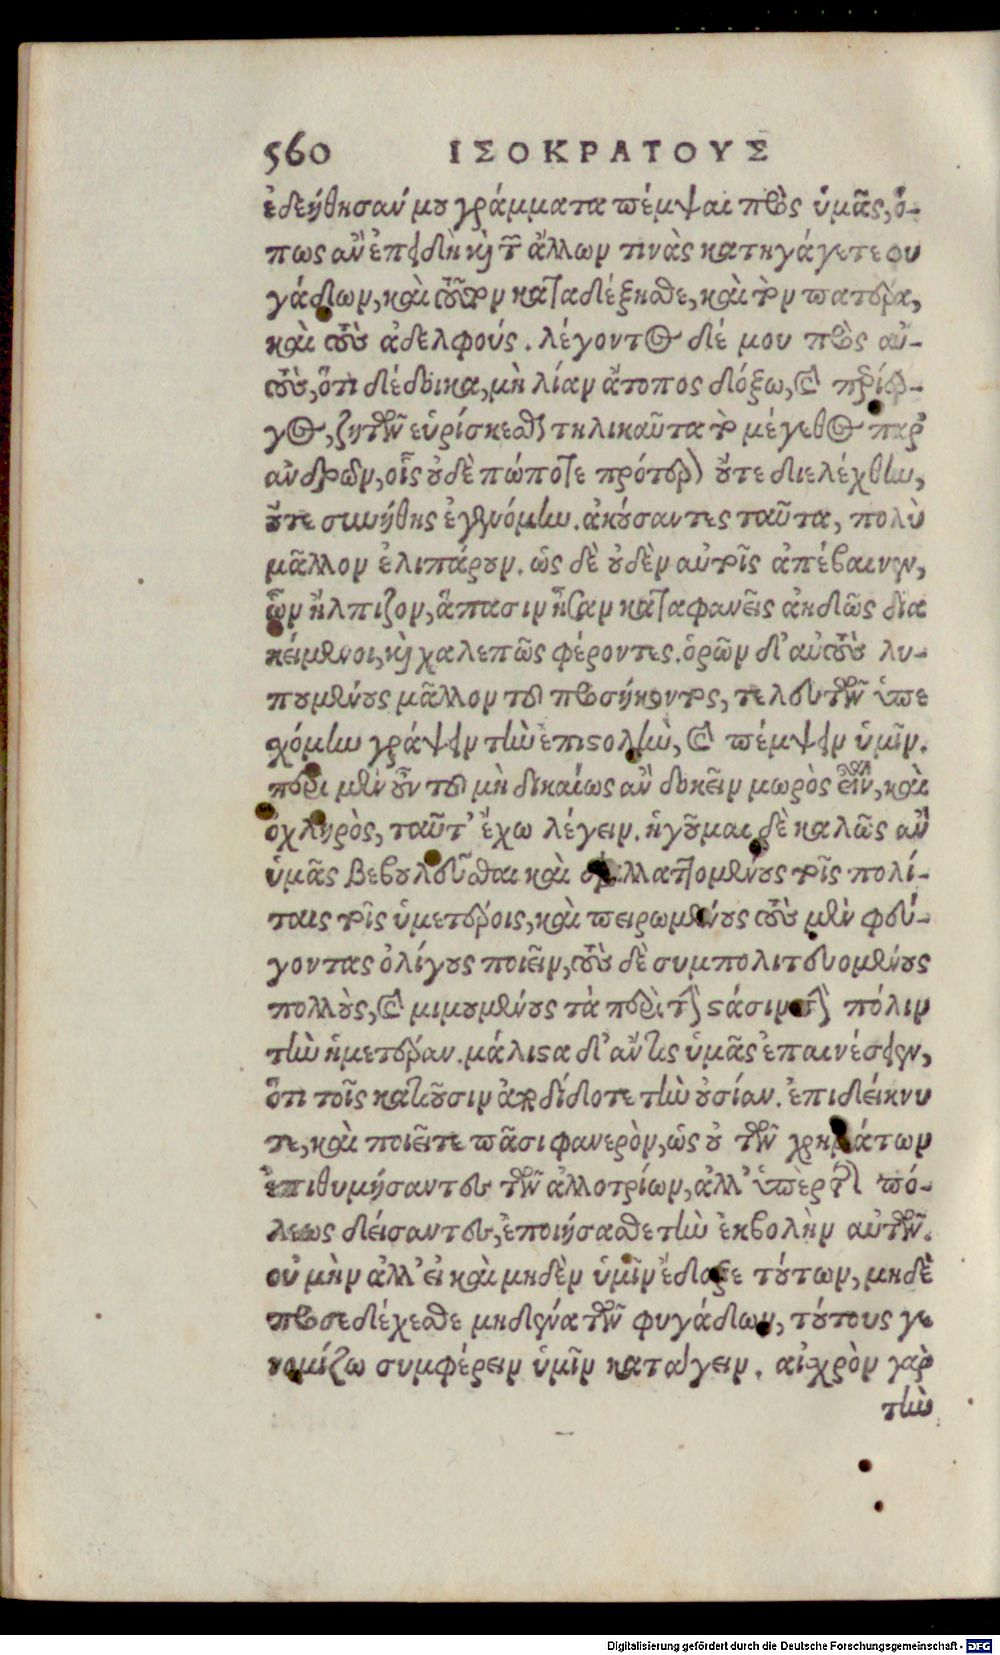 560 ΙΣΟΚΡΑΤΟΥΣ
ἐδεήθησάν μου γράμματα πέμψαι πρὸς ὑμᾶς, ὅ-
πως ἂν ἐπειδὴ καὶ τῶν ἄλλων τινὰς κατηγάγετε φυ
γάδων, καὶ τοῦτον καταδέξησθε, καὶ τὸν πατέρα,
καὶ τοὺς ἀδελφούς. λέγοντος δέ μου πρὸς αὐ-
τοὺς, ὅτι δέδοικα, μὴ λίαν ἄτοπος δόξω, καὶ περίερ-
γος, ζητῶν εὑρίσκεσθαι τηλικαῦτα τὸ μέγεθος παρ'
ἀνδρῶν, οἷς οὐδὲ πώποτε πρότερον οὔτε διελέχθην,
οὔτε συνήθης ἐγενόμην. ἀκούσαντες ταῦτα, πολὺ
μᾶλλον ἐλιπάρουν. ὡς δὲ οὐδὲν αὐτοῖς ἀπέβαινεν,
ὧν ἤλπιζον, ἅπασιν ἦσαν καταφανεῖς ἀηδῶς δια
κείμενοι, καὶ χαλεπῶς φέροντες. ὁρῶν δ' αὐτοὺς λυ-
πουμένους μᾶλλον τοῦ προσήκοντος, τελευτῶν ὑπε
σχόμην γράψειν τὴν ἐπιστολὴν, καὶ πέμψειν ὑμῖν.
περὶ μὲν οὖν τοῦ μὴ δικαίως ἂν δοκεῖν μωρὸς εἶναι, καὶ
ὀχληρὸς, ταῦτ' ἔχω λέγειν. ἡγοῦμαι δὲ καλῶς ἂν
ὑμᾶς βεβουλεῦσθαι καὶ διαλλαττομένους τοῖς πολί-
ταις τοῖς ὑμετέροις, καὶ πειρωμένους τοὺς μὲν φεύ-
γοντας ὀλίγους ποιεῖν, τοὺς δὲ συμπολιτευομένους
πολλοὺς, καὶ μιμουμένους τὰ περὶ τὴν στάσιν τὴν πόλιν
τὴν ἡμετέραν. μάλιστα δ' ἄν τις ὑμᾶς ἐπαινέσειεν,
ὅτι τοῖς κατιοῦσιν ἀποδίδοτε τὴν οὐσίαν. ἐπιδείκνυ
τε, καὶ ποιεῖτε πᾶσι φανερὸν, ὡς οὐ τῶν χρημάτων
ἐπιθυμήσαντες τῶν ἀλλοτρίων, ἀλλ' ὑπὲρ τῆς πό-
λεως δείσαντες, ἐποιήσασθε τὴν ἐκβολὴν αὐτῶν.
οὐ μὴν ἀλλ' εἰ καὶ μηδὲν ὑμῖν ἔδοξε τούτων, μηδὲ
προσεδέχεσθε μηδένα τῶν φυγάδων, τούτους γε
νομίζω συμφέρειν ὑμῖν κατάγειν. αἰσχρὸν γὰρ
τὴν
Digitalisierung gefördert durch die Deutsche Forschungsgemeinschaft - DFG